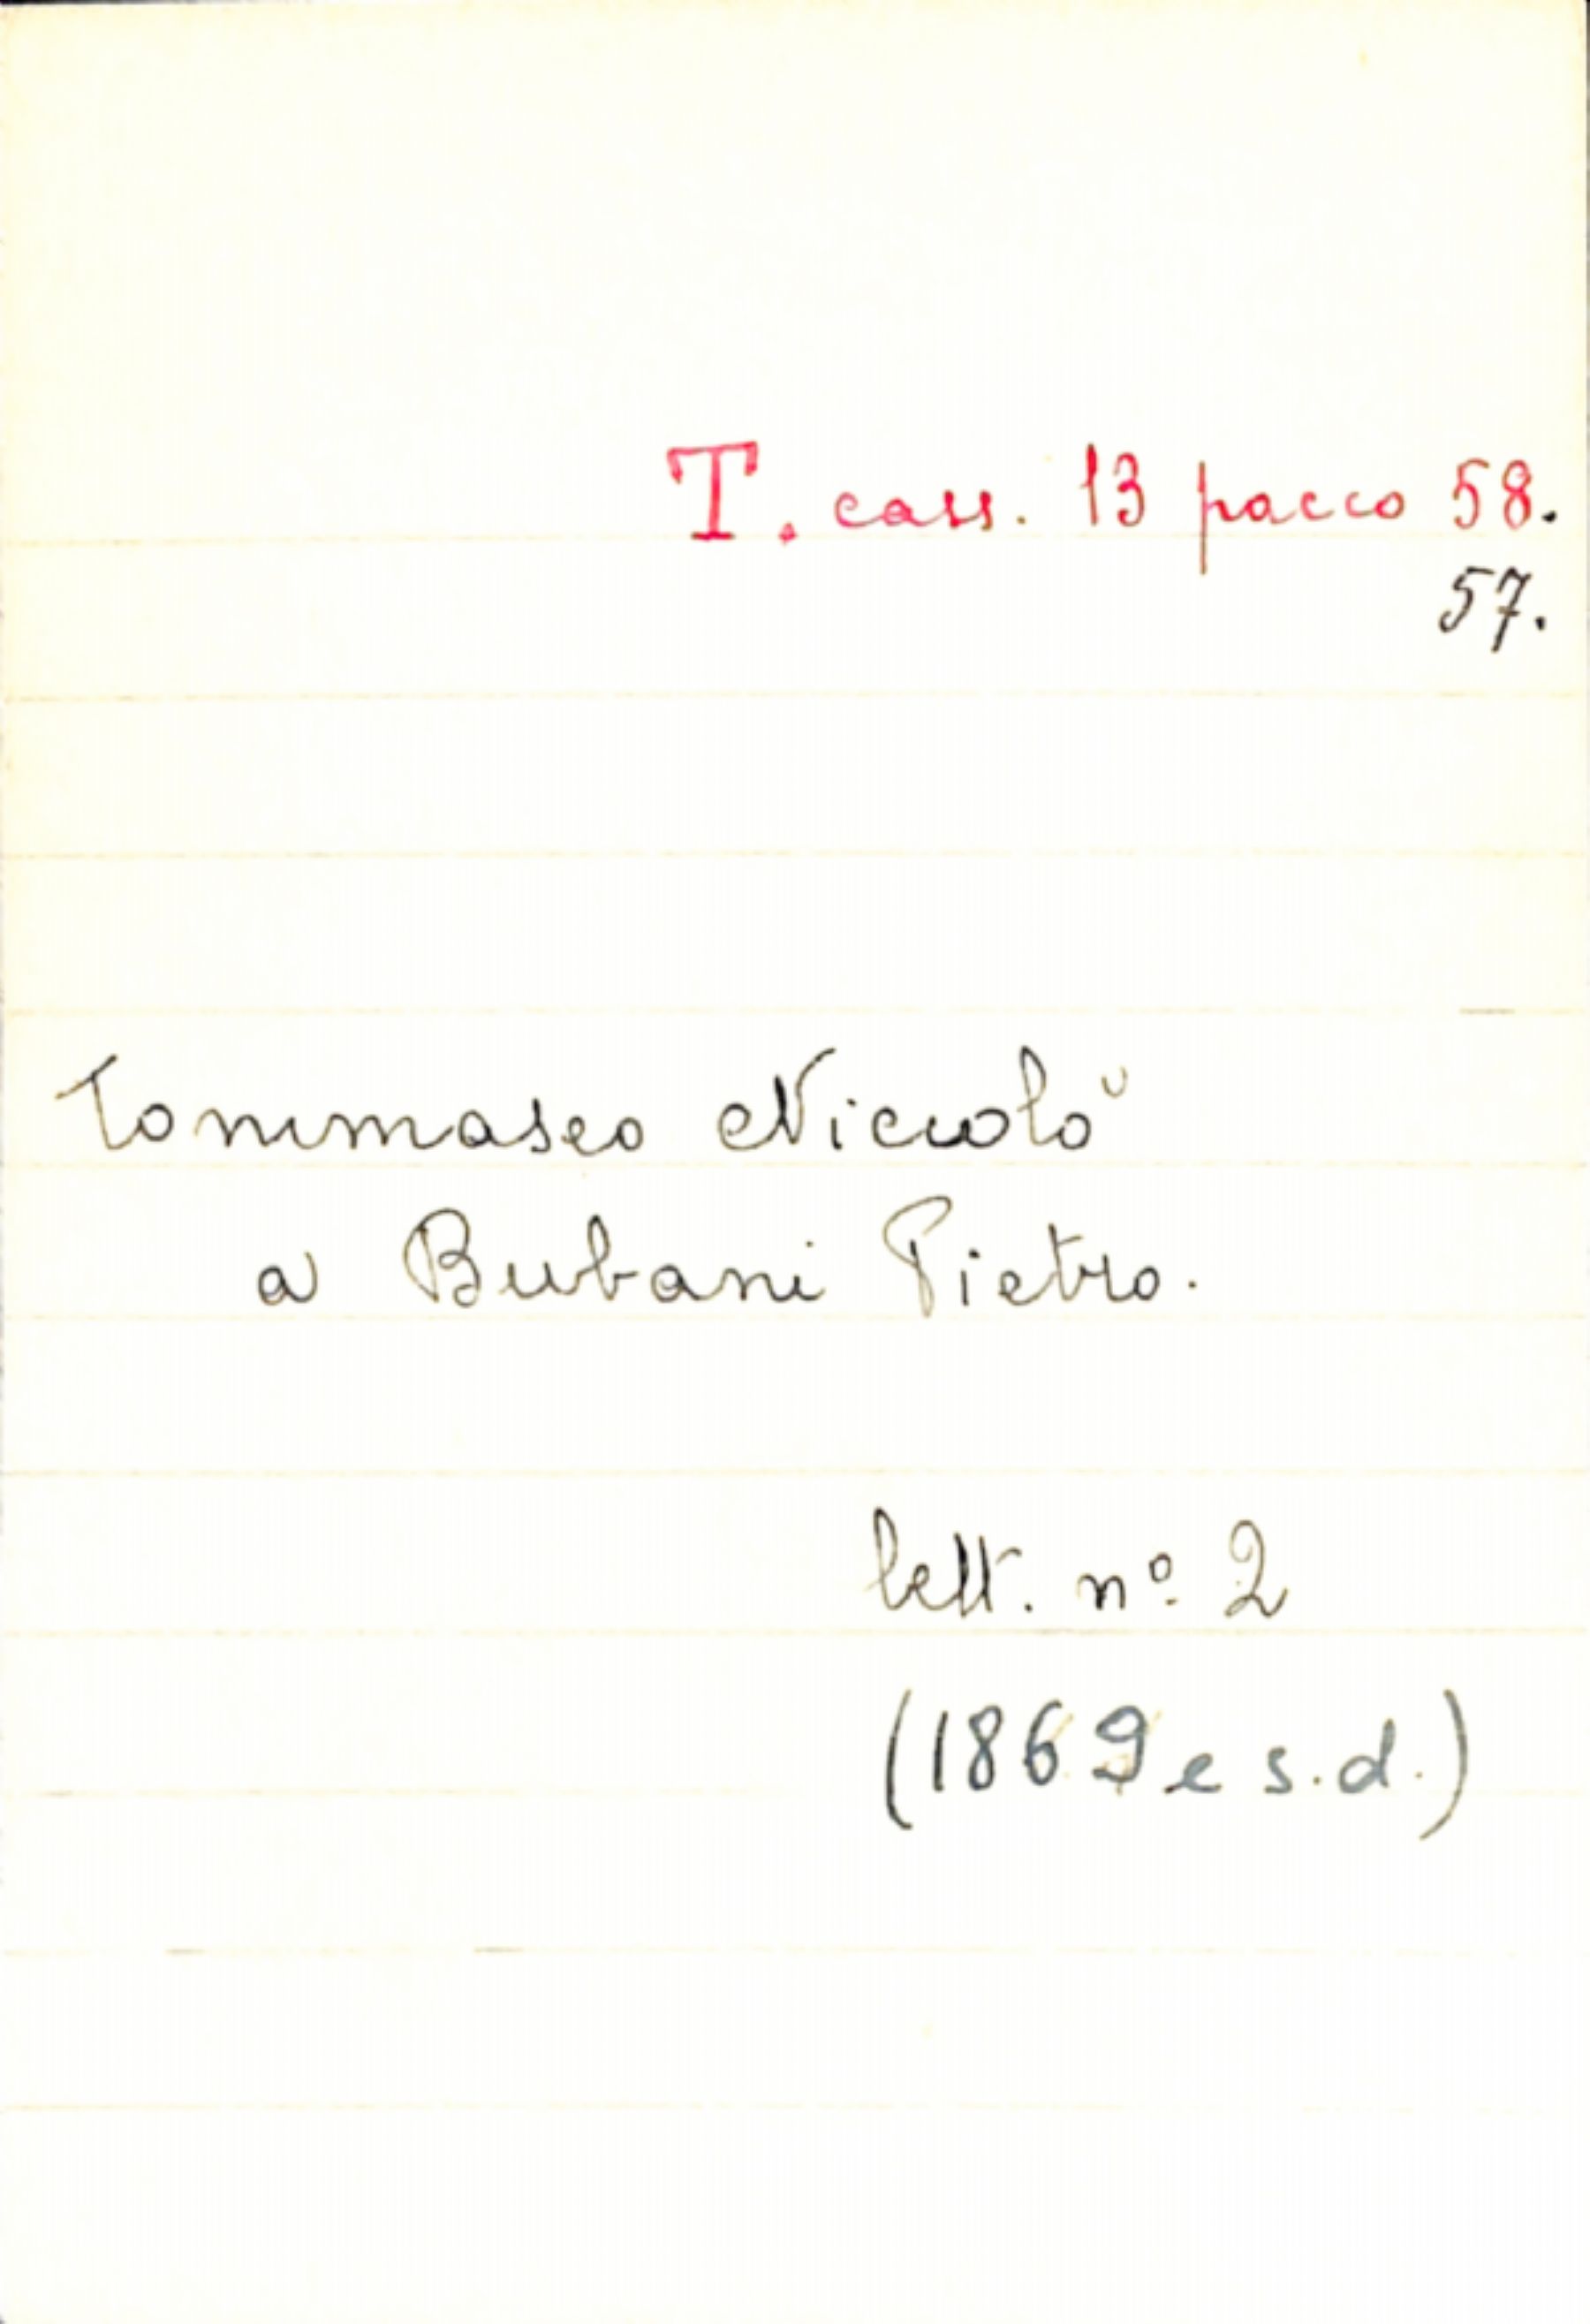 T. cass. 13 pacco 58.
57.
Tommaseo Niccolò
a Bubani Pietro.
lett. nº 2
(1869 e s.d.)